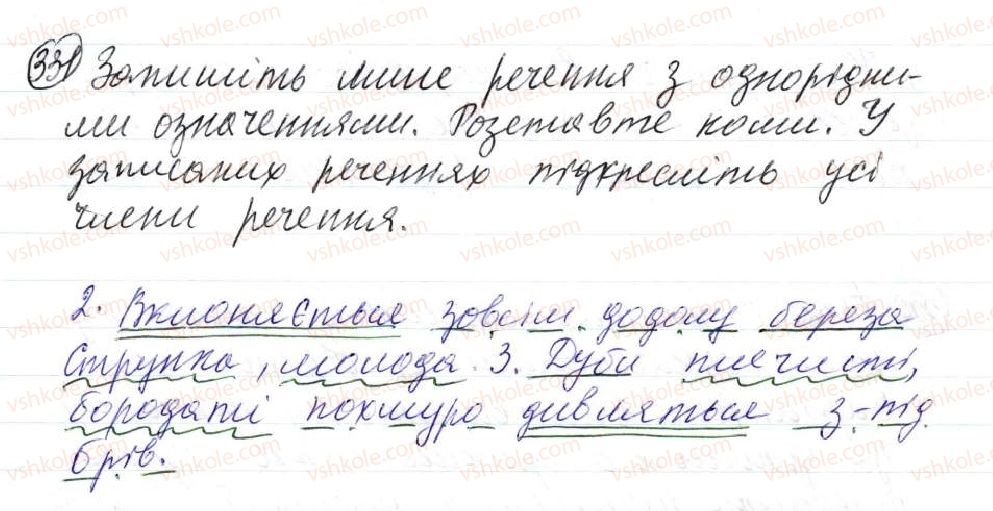 331 Запишіть лише речення з однорідни-
ми означеннями. Розставте коми. У
записаних реченнях підкресліть усі
члени речення.
2. Вклоняється зовсім додолу береза
струнка, молода. 3. Дуби плечисті,
бородаті похмуро дивляться з-під
брів.